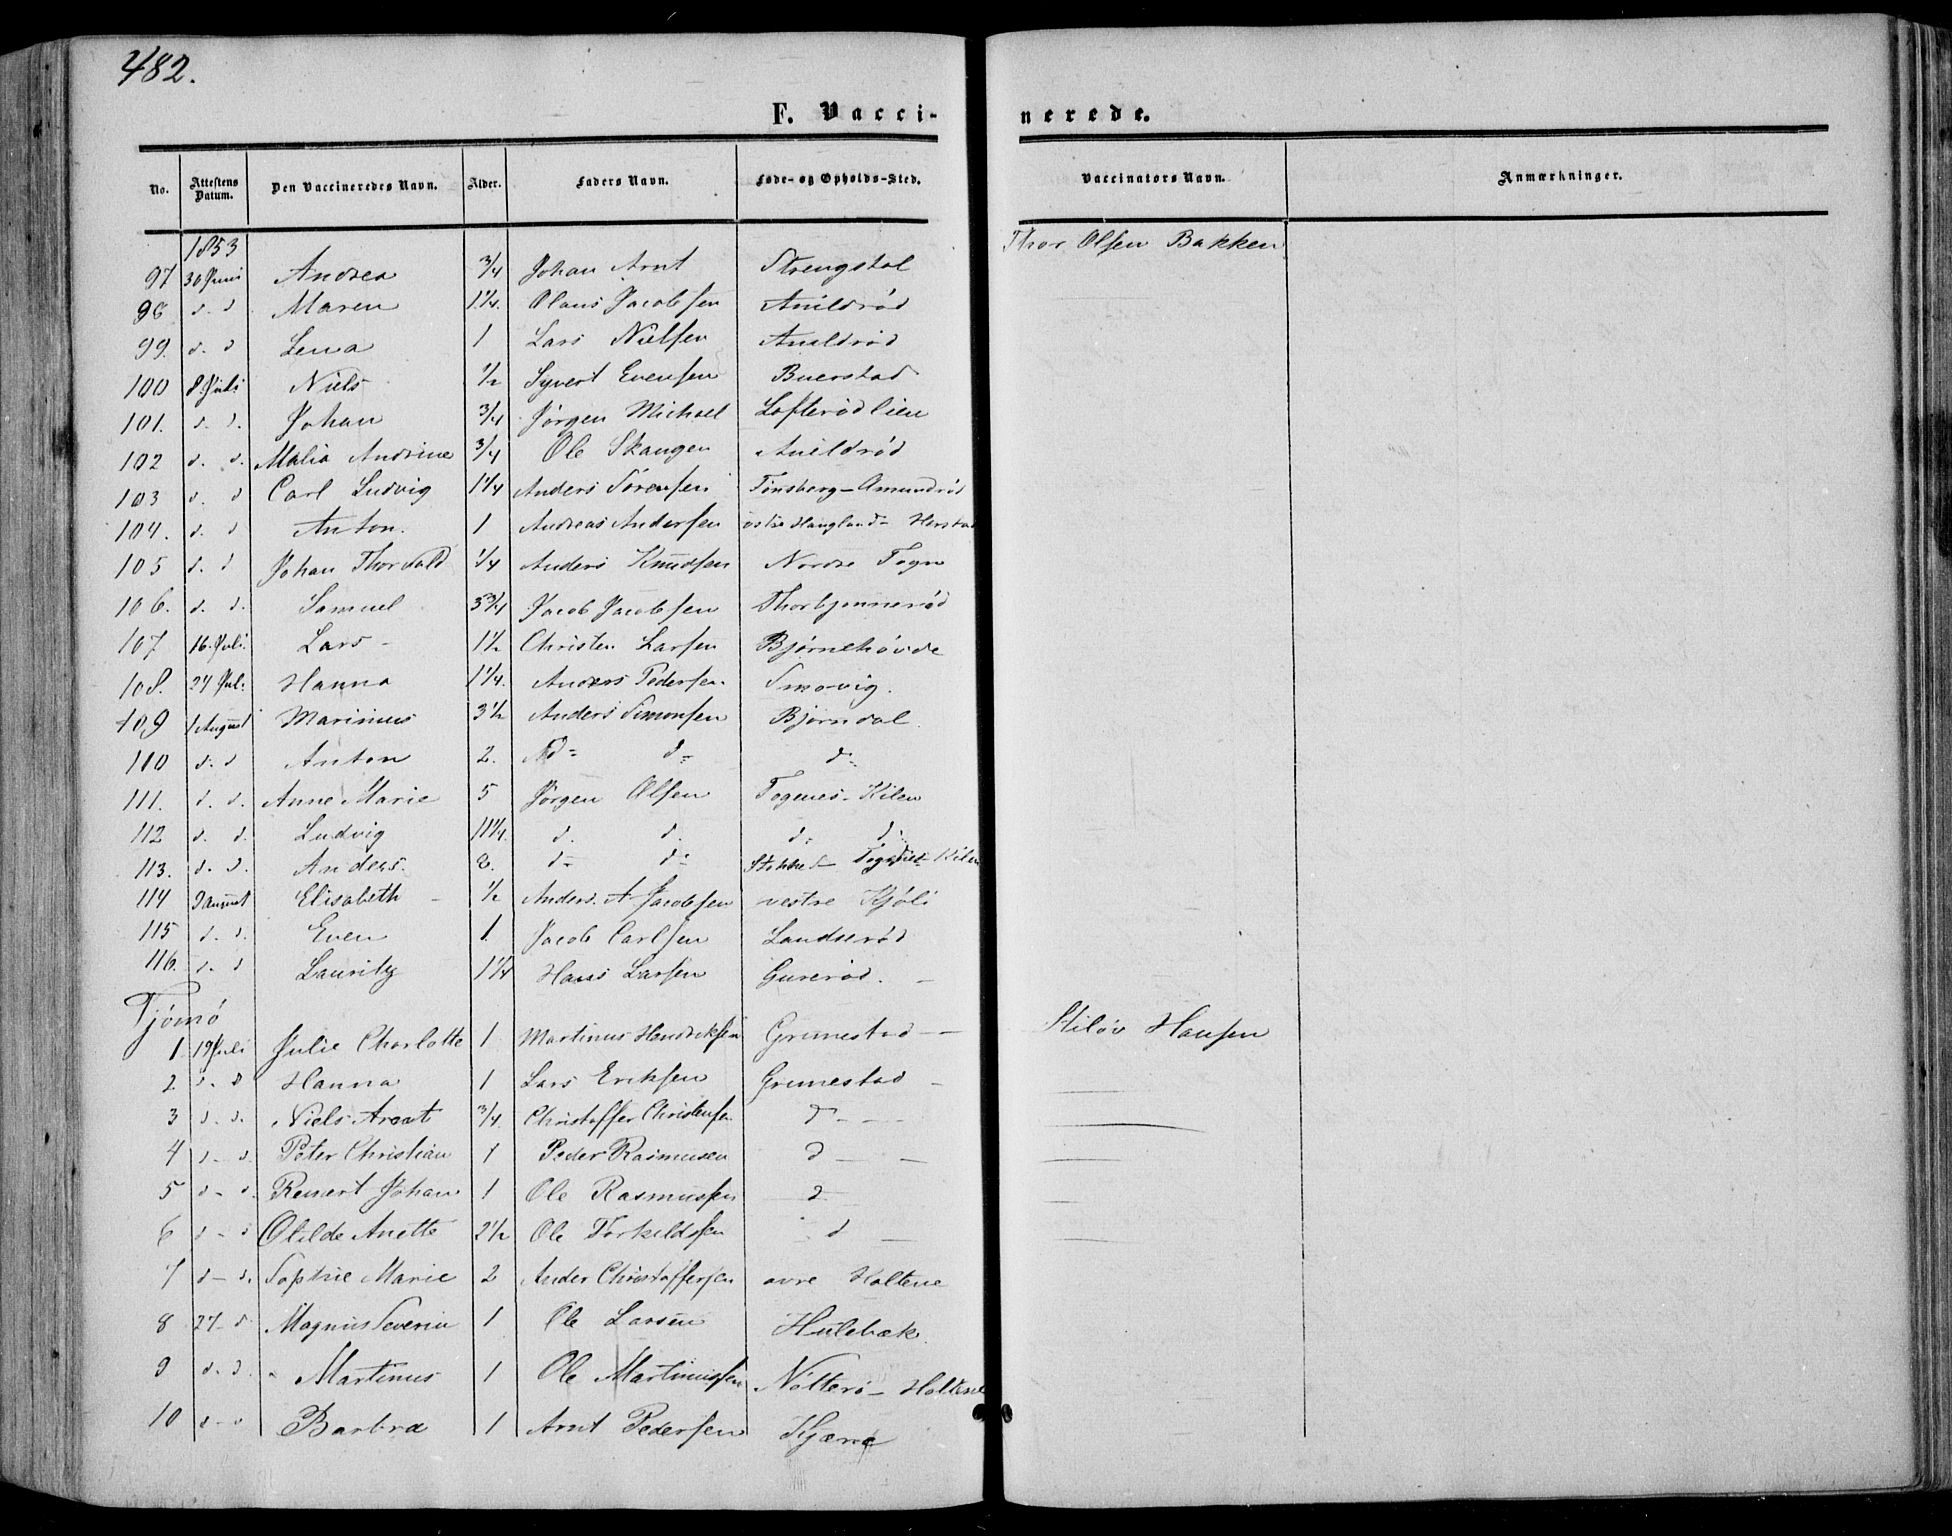 482.
F. Vacci-
nerede.
No. Attestens Datum. Den Vaccineredes Navn. Alder. Faders Navn. Føde- og Opholds-Sted. Vaccinators Navn. Anmærkninger.
1853 Thor Olsen Bakken
97 30 Juni Andrea 3/4 Johan Arnt Strengstol
98 d. d Maren 1 1/4. Olaus Jacobsen Anildrød
99. d. d Lena 1 Lars Nielsen Anildrød
100 8 Juli Niels 1/2 Syvert Evensen Buerstad
101. d. d. Johan 3/4 Jørgen Michael Lofterødlien
102 d. d. Malia Andrine 3/4 Ole Skaugen Anildrød
103 d. d Carl Ludvig 1 1/4 Anders Sørensen Tønsberg - Amundrød
104. d. d Anton. 1 Andreas Andersen østre Haugland -
105 d. d Johan Thorvald 1/4 Anders Knudsen Nordre Fogn
106. d. d. Samuel 5 3/4 Jacob Jacobsen Thorbjønnerød
107 16. Juli. Lars - 1 1/2 Christen Larsen Bjørnehövde
108. 24 Juli Hanna 1 1/4. Anders Pedersen. Smørvig.
109 1 August Marinus 3 1/2 Anders Simonsen Bjørndal
110 d. d Anton 2. d- d- d-
111. d. d. Anne Marie 5 Jørgen Olsen Togenes - Kilen
112 d. d. Ludvig 11 1/4. d. d. d. d.
113. d. d. Anders. 8. d- d- Stokke - Kilen
114 9 August Elisabeth - 1/2 Anders. A. Jacobsen vestre Kjøli
115 d. d. Even 1. Jacob Carlsen Landserød
116. d. d Lauritz 1 1/4 Hans Larsen Guserød. -
Tjömö
1. 19 Juli Julie Charlotte 1 Martinus Hendriksen Grimestad - Stiløv Hansen
2. d. d Hanna 1 Lars Eriksen Grimestad -
3 d. d. Niels Arent 3/4. Christoffer Christensen d - -
4 d - d. Peter Christian 1 Peder Rasmusen d - -
5 d - d. Reinert Johan 1 Ole Rasmussen d
6 d - d Otilde Anette 2 1/2 Ole Torkildssen d -
7 d - d. Sophie Marie 2 Ander Christoffersen øvre Holtene
8 27 - d Magnus Severin 1 Ole Larsen Hulebæk.
9 d. d. - Martinus 1 Ole Martinussen Nötterö - Holtene
10 d - d Barbra 1 Arnt Pedersen Kjærre